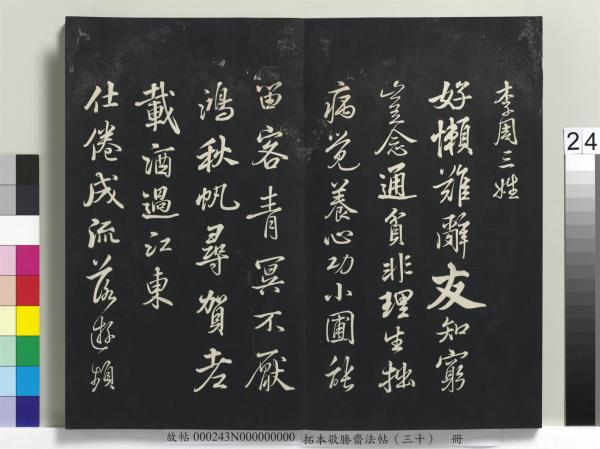 李周三姓
好懶難辭友知窮
豈念通貧非理生拙
病覺養心功小圃能
留客青冥不厭
鴻秋帆尋賀老
載酒過江東
仕倦成流落遊頻
故帖 000243N000000000
拓本敬勝齋法帖(三十) 冊
24